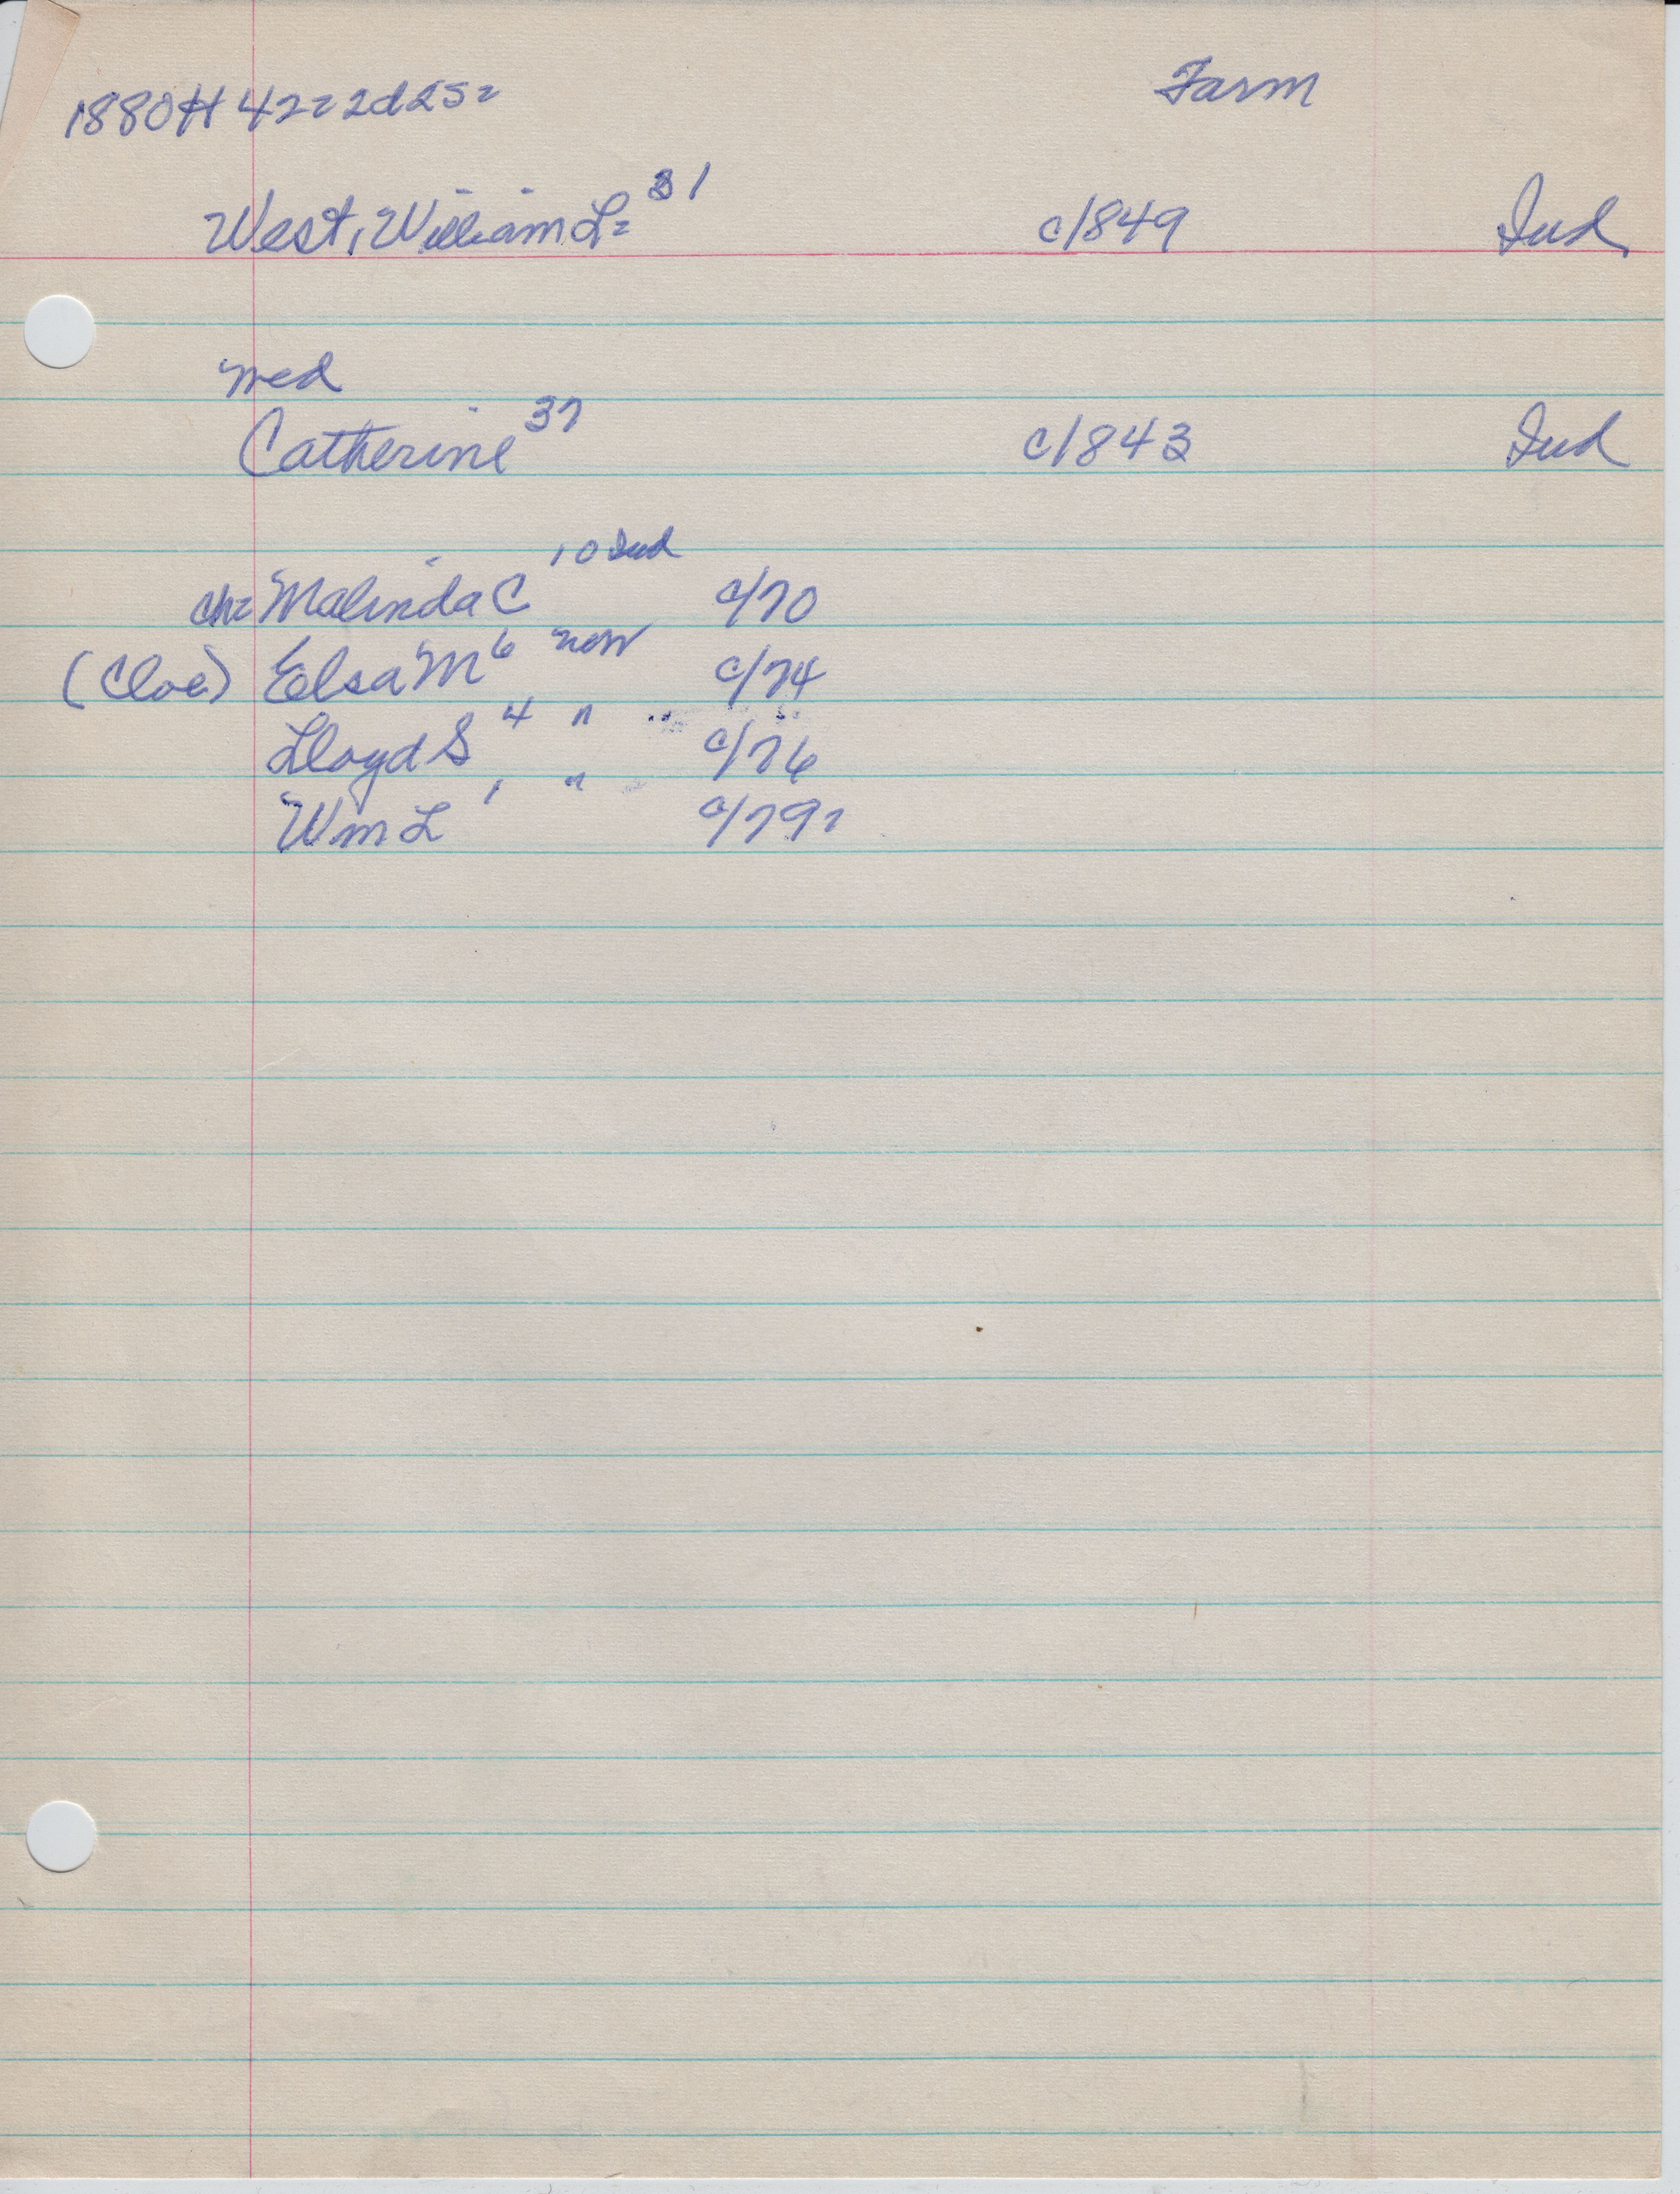 1880 # 42=2d252 Farm
West, William L= 31 c/849 Ind.
med
Catherine 37 c/843 Ind
10 Ind
ch= Malinda C c/70
(Cloe) Elsa M 6 now c/74
Lloyd S 4 " c/76
Wm L 1 " c/79?